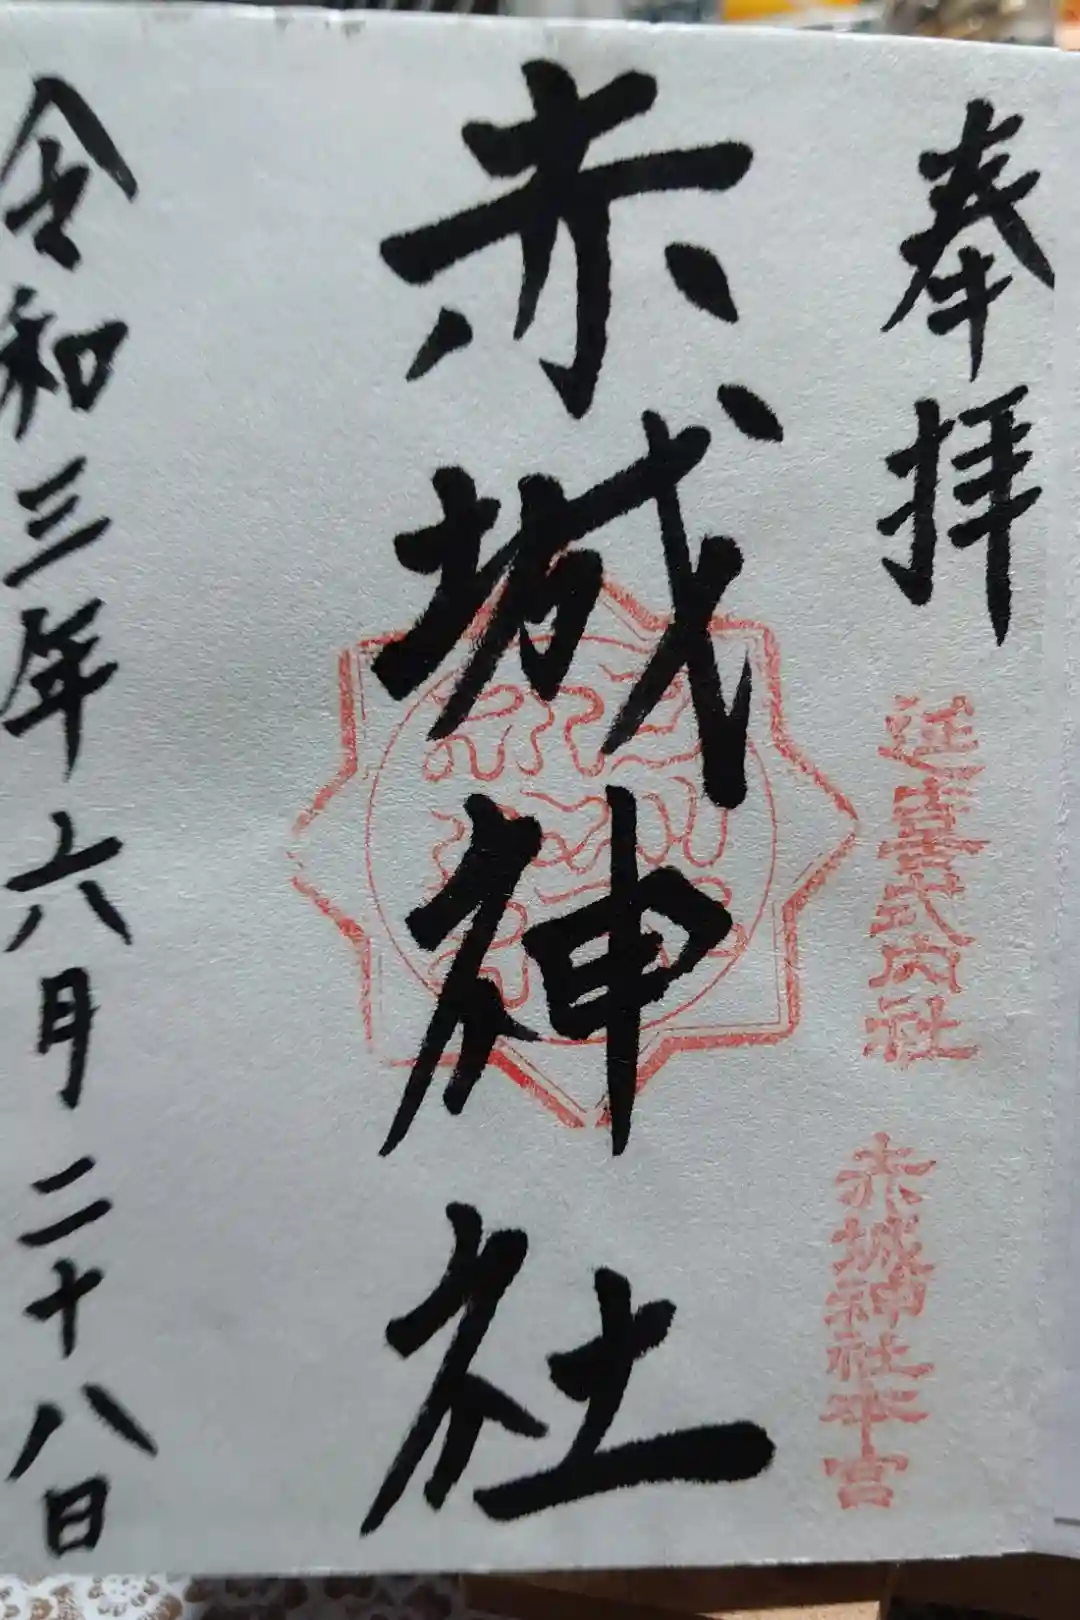 奉拝
延喜式内社
赤城神社本宮
赤城神社
令和三年六月二十八日